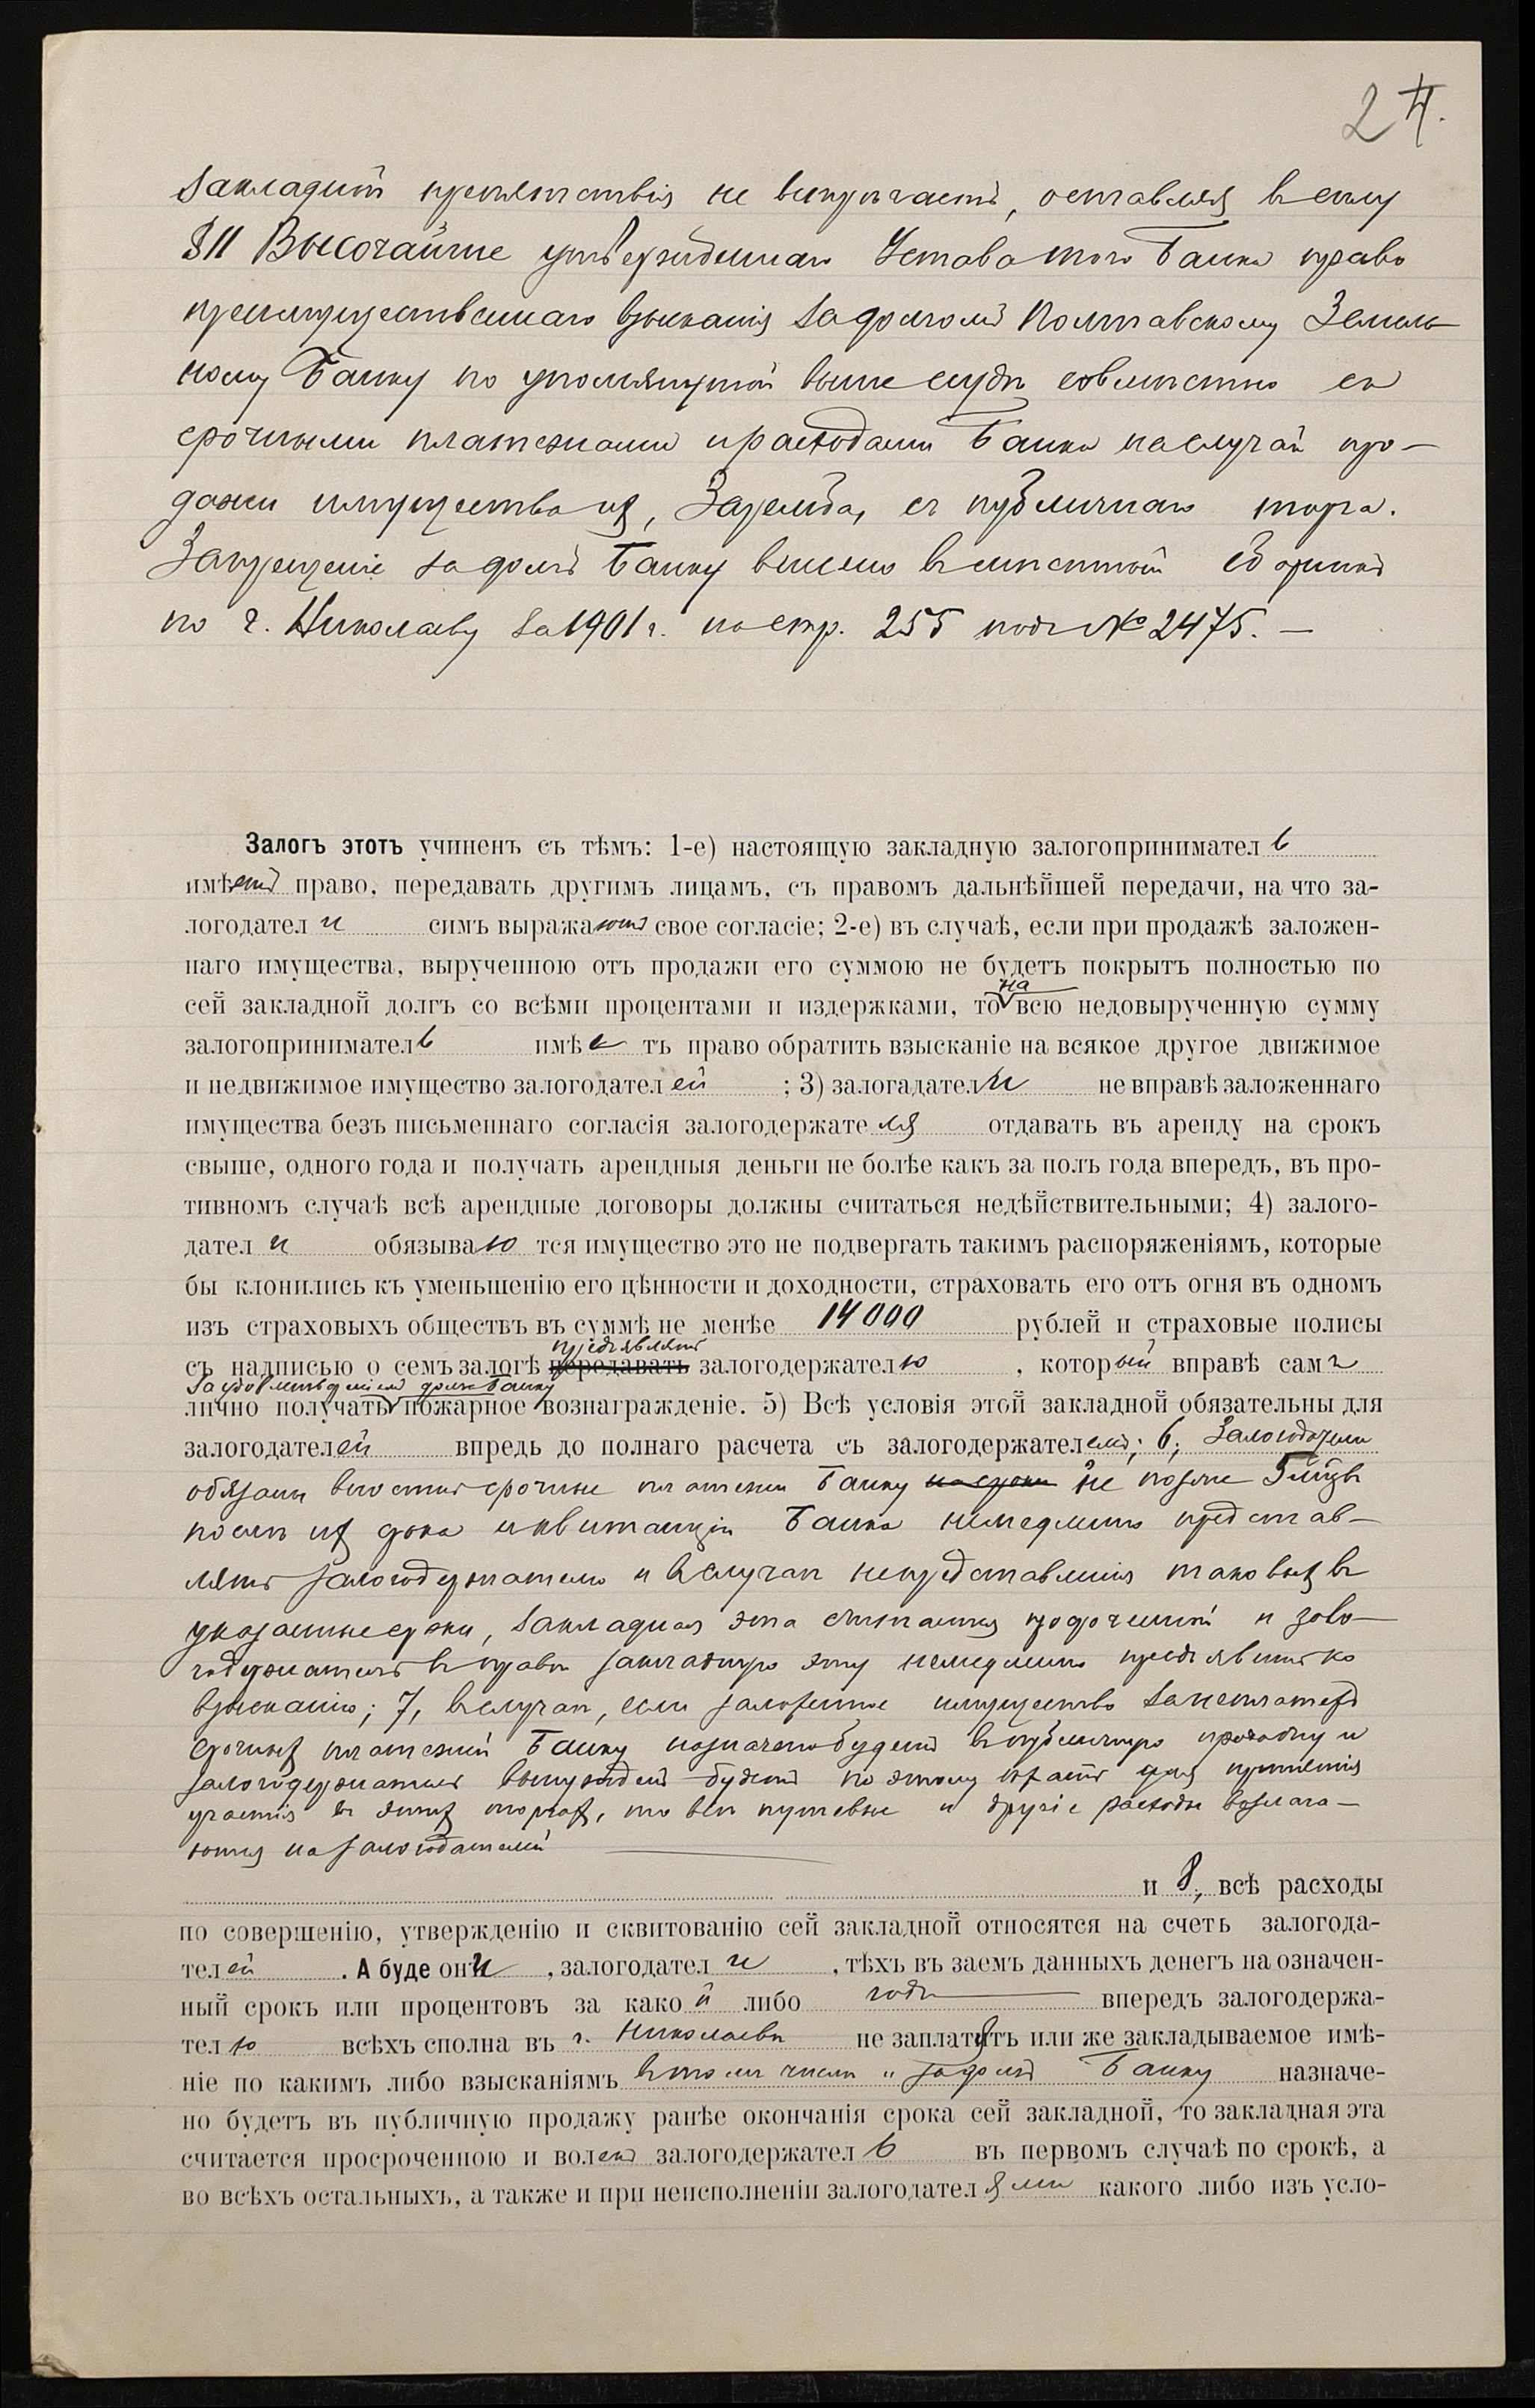 2
закладной препятствія не встрѣчаетъ, оставляя въ силу
§11 Высочайше утвержденнаго Устава того Банка право
преимущественнаго взысканія за долгомъ Полтавскому Земель-
ному Банку по упомянутой выше ссудѣ совмѣстно съ
срочными платежами и расходами Банка на случай про-
дажи имущества ихъ, съ публичнаго торга.
Запрещеніе за долгъ Банку внесено въ сборникъ
по г. Николаеву за 1901 г. на стр. 255 подъ № 2475. —
Залогъ этотъ учиненъ съ тѣмъ: 1-е) настоящую закладную залогопринимател ь
имѣетъ право, передавать другимъ лицамъ, съ правомъ дальнѣйшей передачи, на что за-
логодател и симъ выражаютъ свое согласіе; 2-е) въ случаѣ, если при продажѣ заложен-
наго имущества, вырученною отъ продажи его суммою не будетъ покрытъ полностью по
сей закладной долгъ со всѣми процентами и издержками, то на всю недовырученную сумму
залогопринимател ь имѣ е тъ право обратить взысканіе на всякое другое движимое
и недвижимое имущество залогодател ей ; 3) залогадател и не вправѣ заложеннаго
имущества безъ письменнаго согласія залогодержате ля отдавать въ аренду на срокъ
свыше, одного года и получать арендныя деньги не болѣе какъ за полъ года впередъ, въ про-
тивномъ случаѣ всѣ арендные договоры должны считаться недѣйствительными; 4) залого-
дател и обязыва ю тся имущество это не подвергать такимъ распоряженіямъ, которые
бы клонились къ уменьшенію его цѣнности и доходности, страховать его отъ огня въ одномъ
изъ страховыхъ обществъ въ суммѣ не менѣе 14000 рублей и страховые полисы
предъявлять
съ надписью о семъ залогѣ передавать залогодержател ю , который вправѣ самъ
За удовлетвореніемъ долга Банку
лично получать пожарное вознагражденіе. 5) Всѣ условія этой закладной обязательны для
залогодателей впредь до полнаго расчета съ залогодержателемъ; 6, Залогодатели
обязаны вносить срочные платежи Банку на сроки не позже
послѣ их срока и квитанціи Банка немедленно представ-
лять залогодержателю и въ случаѣ непредставленія таковыхъ въ
указанные сроки, закладная эта считается просроченной и зало-
годержатель въ правѣ закладную эту немедленно предъявить ко
взысканію; 7, въ случаѣ, если заложенное имущество за неплатежъ
срочныхъ платежей Банку назначено будетъ въ публичную продажу и
залогодержатель вынужденъ будетъ по этому ѣхать для принятія
участія въ этихъ торгахъ, то всѣ путевые и другіе расходы возлага-
ются на залогодателей
и 8, всѣ расходы
по совершенію, утвержденію и сквитованію сей закладной относятся на счетъ залогода-
телей . А буде они , залогодател и , тѣхъ въ заемъ данныхъ денегъ на означен-
ный срокъ или процентовъ за како й либо годъ впередъ залогодержа-
тел ю всѣхъ сполна въ г. Николаевѣ не заплатятъ или же закладываемое имѣ-
ніе по какимъ либо взысканіямъ въ томъ числѣ и за долгъ Банку назначе-
но будетъ въ публичную продажу ранѣе окончанія срока сей закладной, то закладная эта
считается просроченною и воленъ залогодержател ь въ первомъ случаѣ по срокѣ, а
во всѣхъ остальныхъ, а также и при неисполненіи залогодател ями какого либо изъ усло-